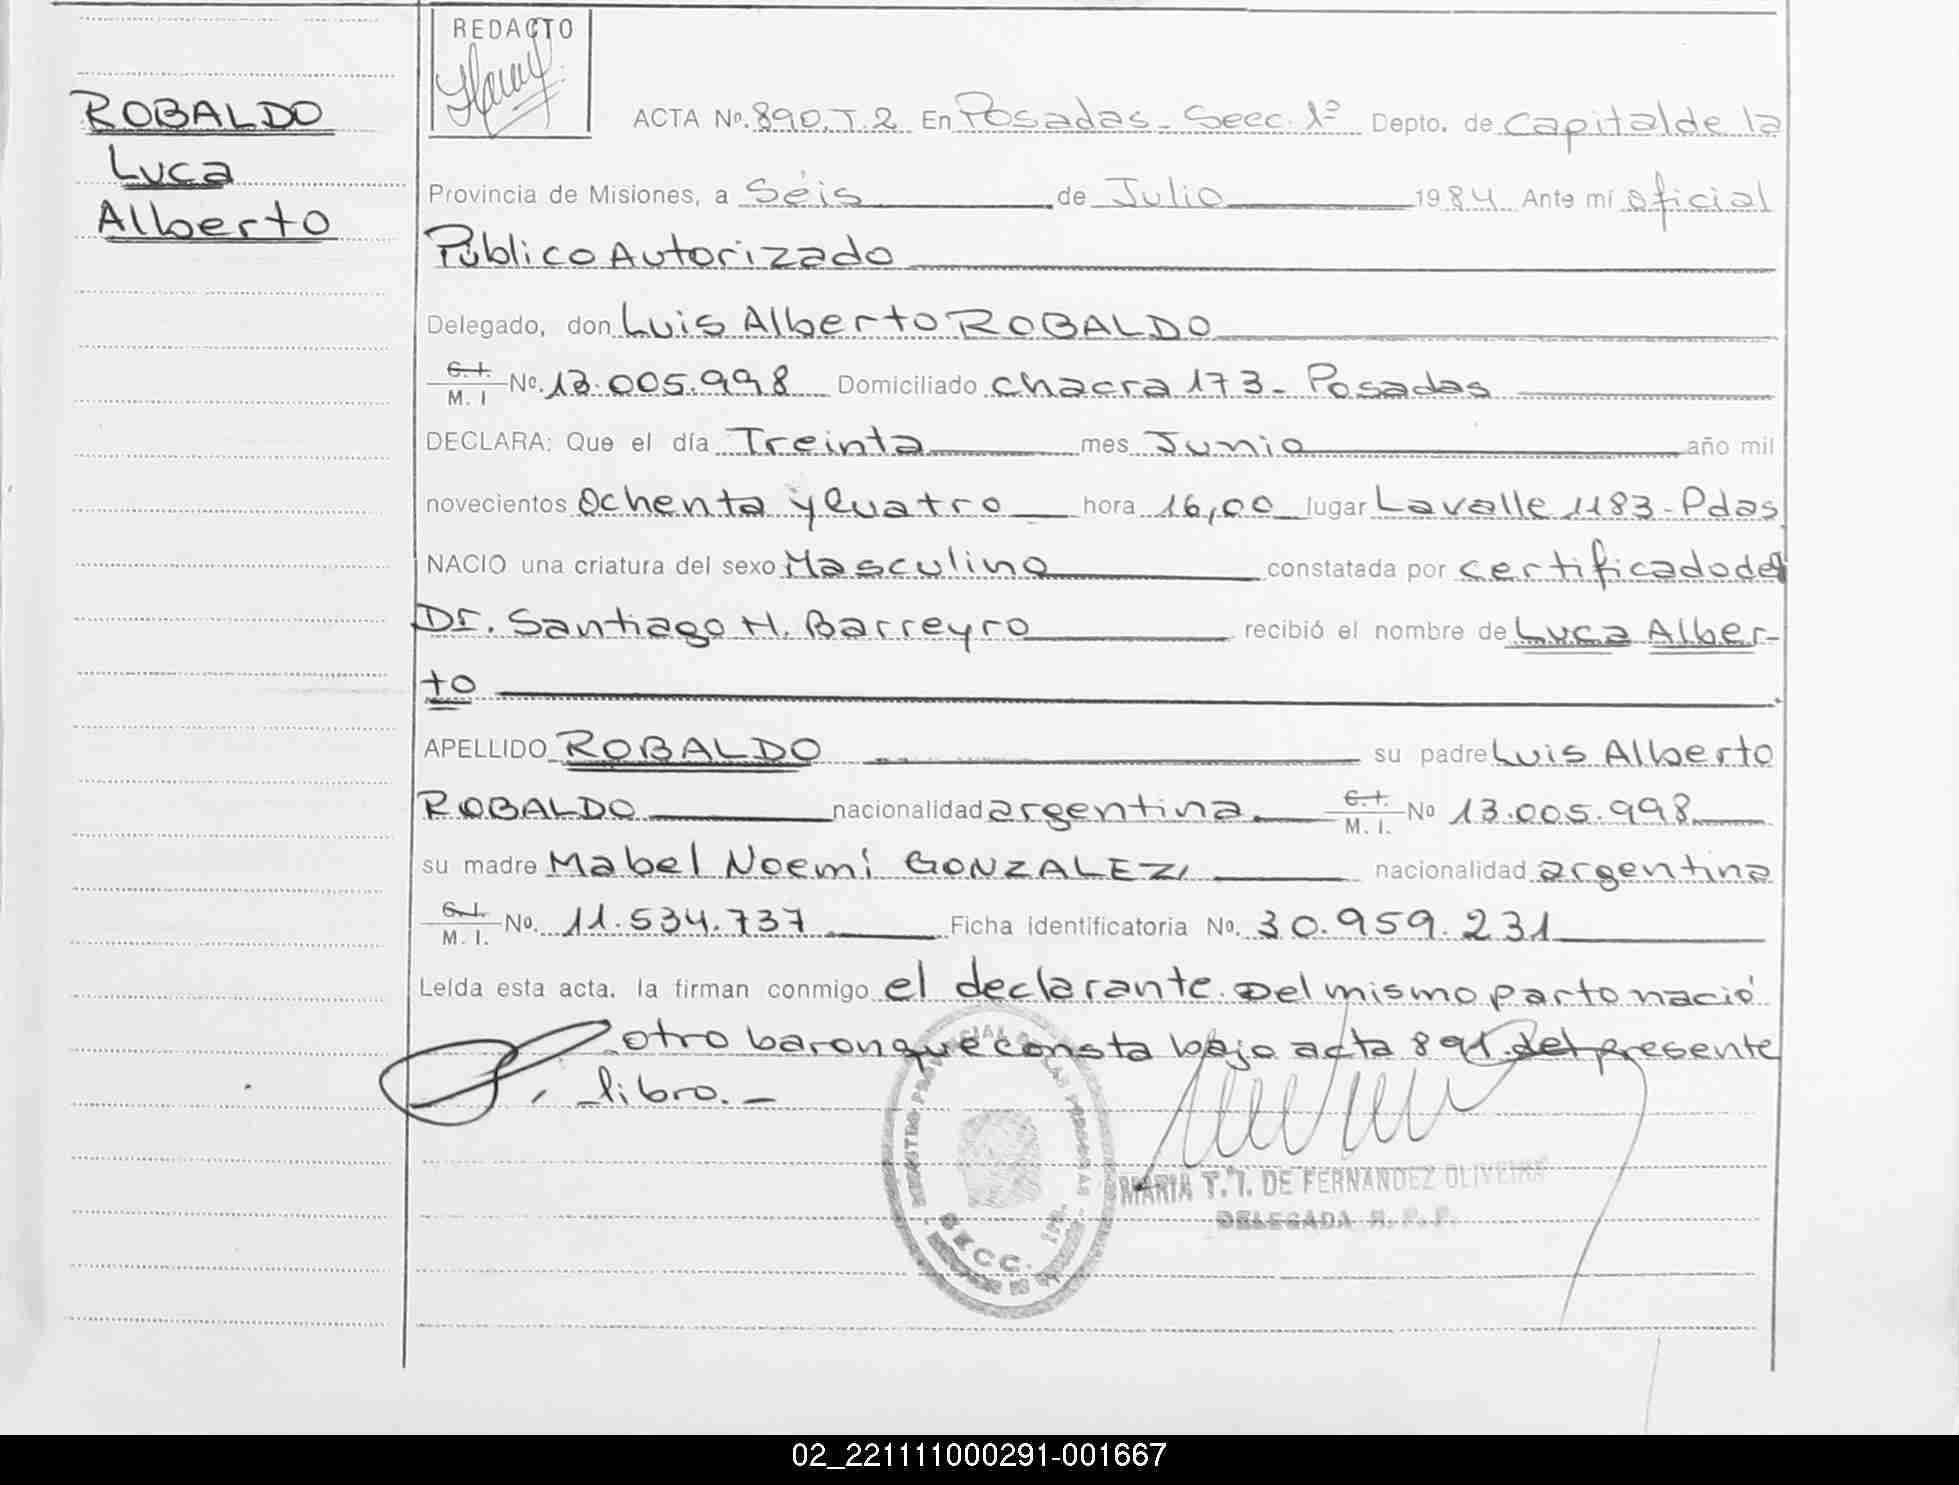 REDACTO
ROBALDO
Luca
Alberto
ACTA Nº. 890. T. 2 En Posadas - Secc. 1ª Depto. de Capital de la
Provincia de Misiones, a Séis de Julio 1984 Ante mí oficial
Público Autorizado
Delegado, don Luis Alberto ROBALDO
C. I.
M. I Nº. 13.005.998 Domiciliado chacra 173 - Posadas
DECLARA: Que el día Treinta mes Junio año mil
novecientos Ochenta y Cuatro hora 16,00 lugar Lavalle 1183 - Pdas
NACIO una criatura del sexo Masculino constatada por certificado del
Dr. Santiago H. Barreyro recibió el nombre de Luca Alber-
to
APELLIDO ROBALDO su padre Luis Alberto
ROBALDO nacionalidad argentina. C. I.
M. I. Nº 13.005.998
su madre Mabel Noemí GONZALEZ nacionalidad argentina
C. I.
M. I. Nº. 11.534.737 Ficha identificatoria Nº. 30.959.231
Leída esta acta, la firman conmigo el declarante. Del mismo parto nació
otro baron que consta bajo acta 891 del presente
libro. -
REGISTRO PROVINCIAL DE LAS PERSONAS
SECC. 1RA.
MARIA T. I. DE FERNANDEZ OLIVEIRA
DELEGADA R. P. P.
02_221111000291-001667